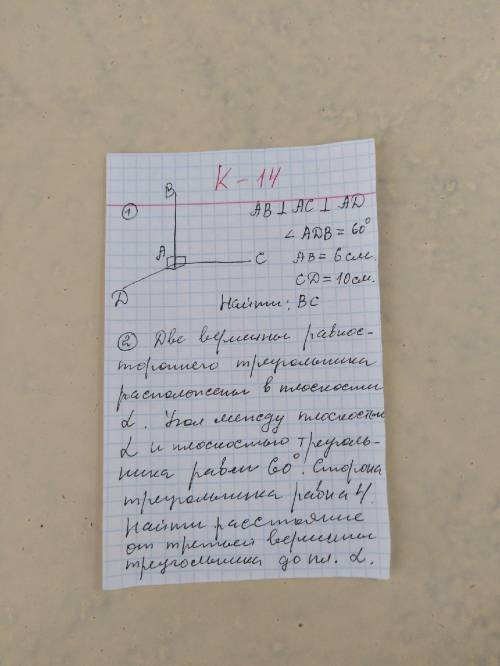 К-14
① B
AB ⊥ AC ⊥ AD
∠ADB = 60°
A
AB = 6 см.
C
CD = 10 см.
D
Найти: BC
② Две вершины равнос-
тороннего треугольника
расположены в плоскости
α. Угол между плоскостью
α и плоскостью треуголь-
ника равен 60°. Сторона
треугольника равна 4.
Найти расстояние
от третьей вершины
треугольника до пл. α.